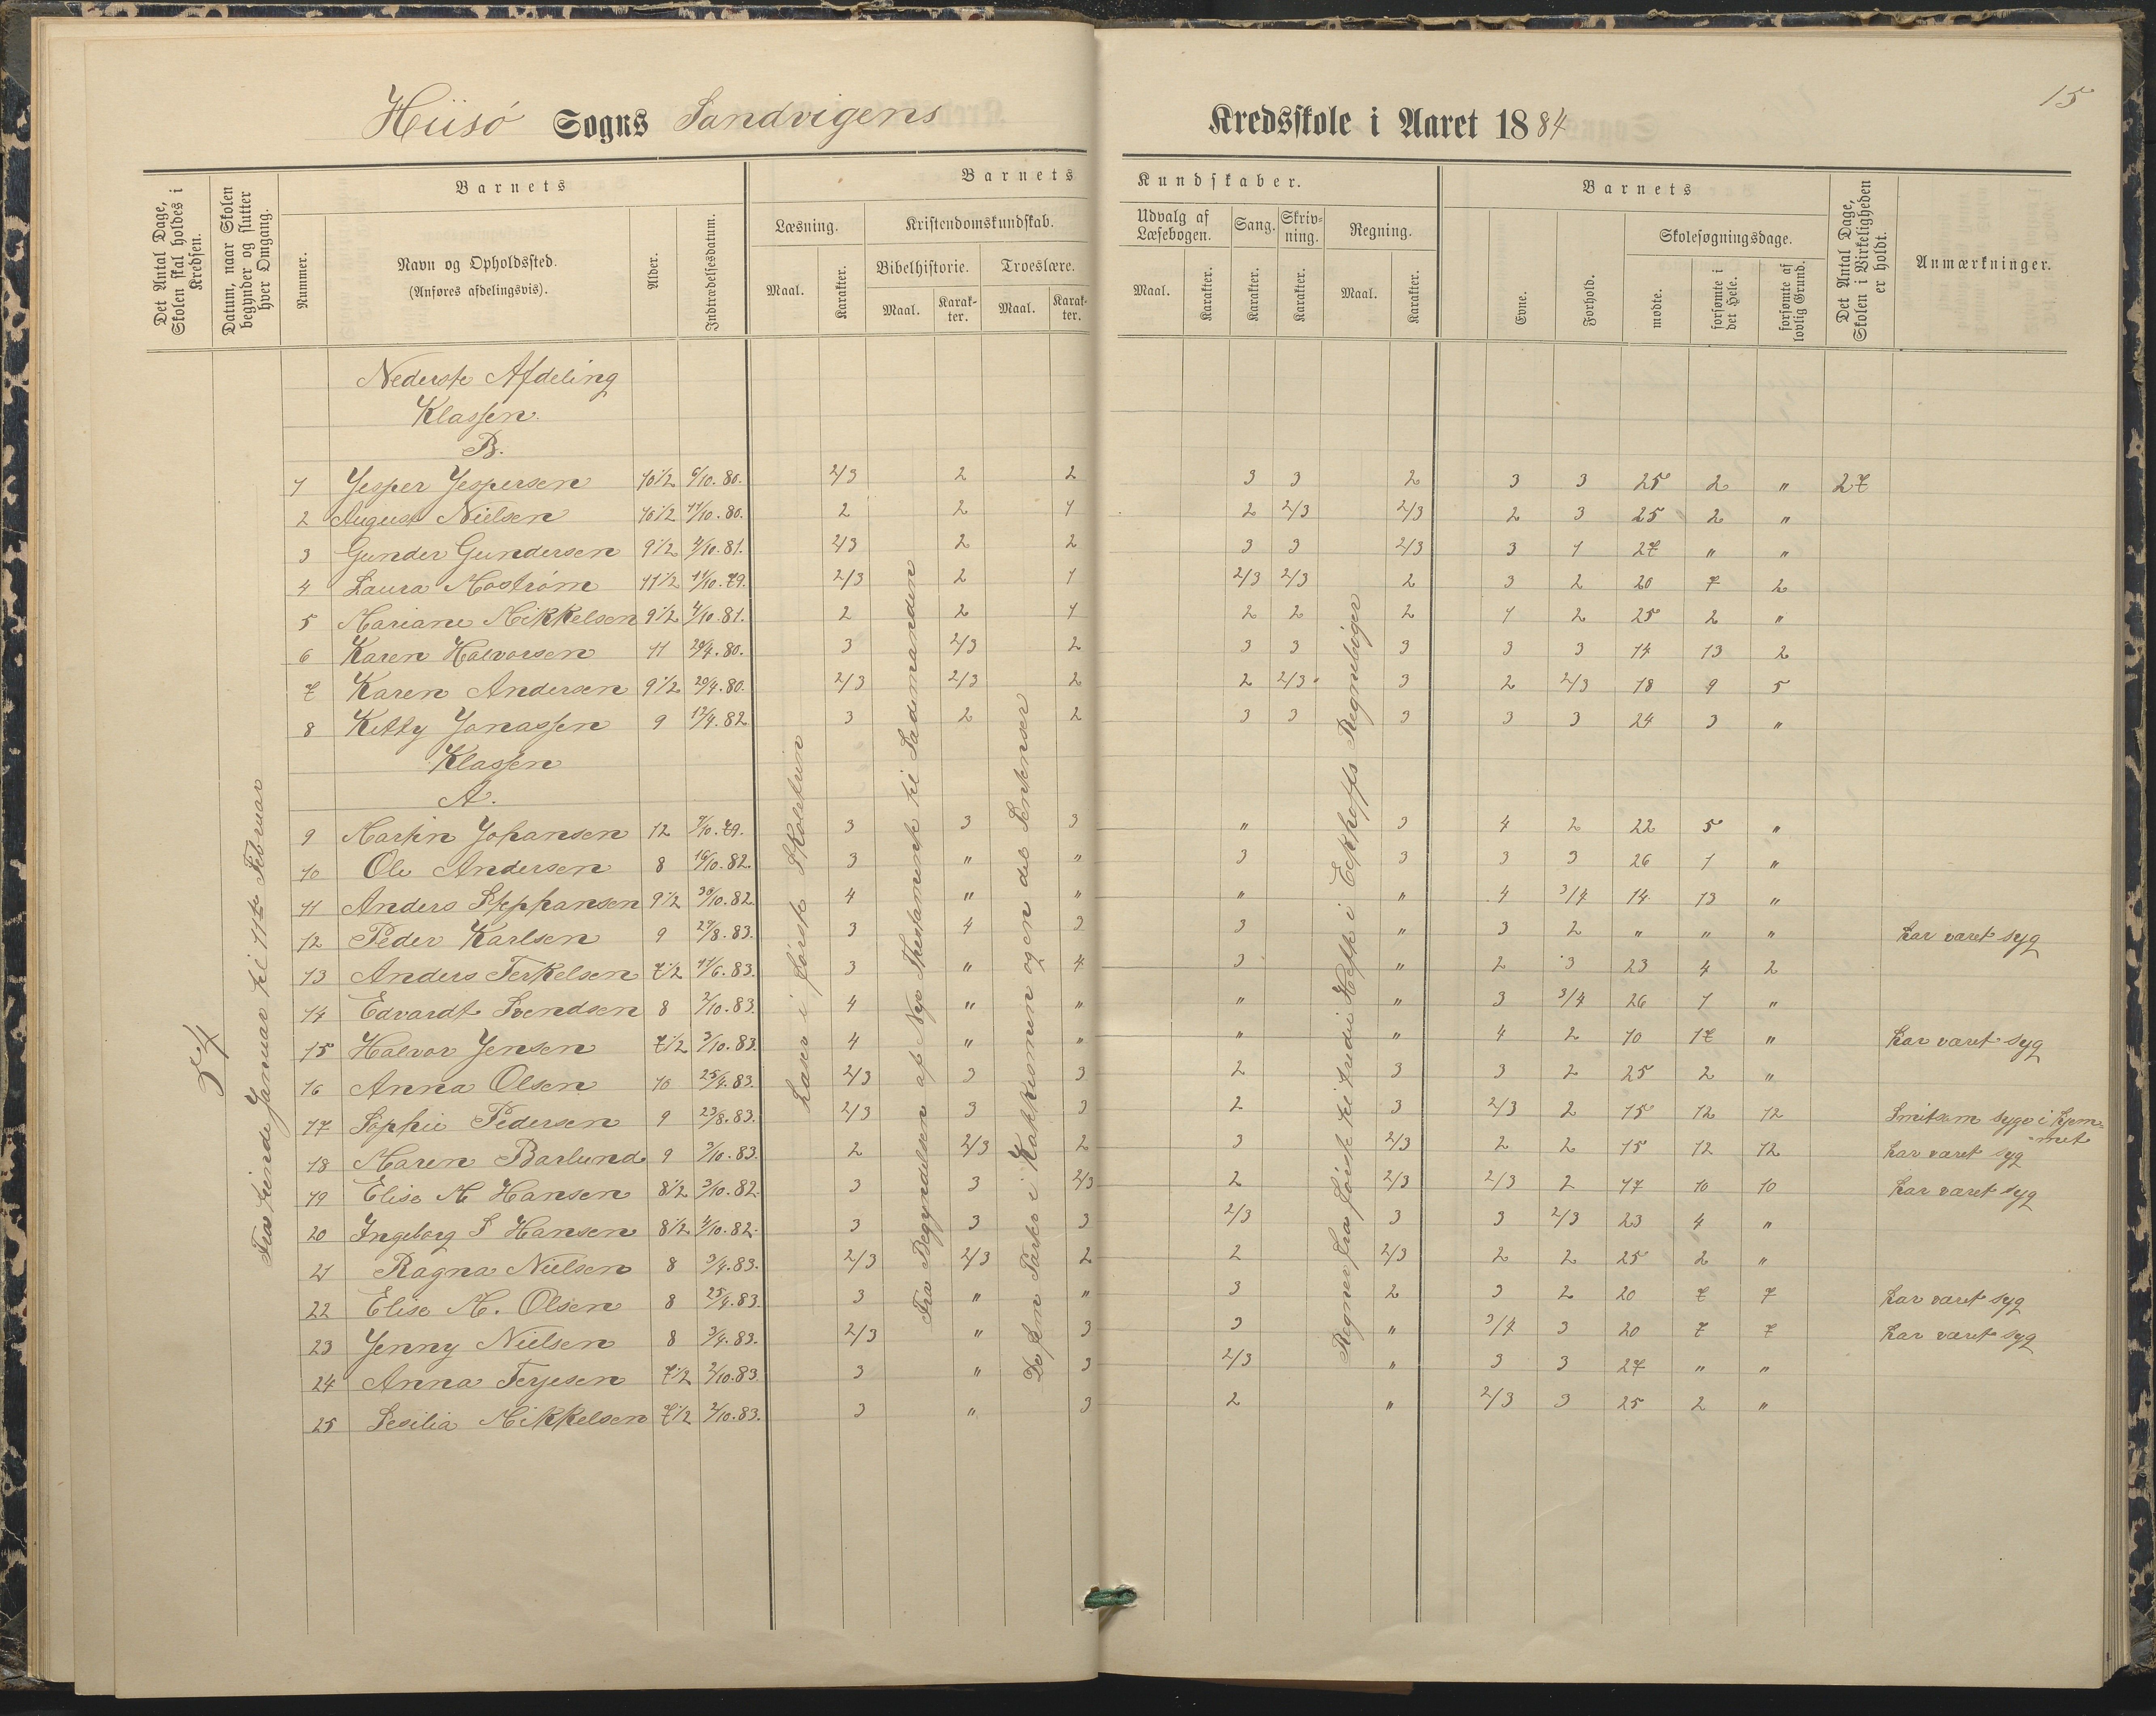 15
Hiisö Sogns Sandvigens Kredsskole i Aaret 1884
Det Antal Dage, Skolen skal holdes i Kredsen.
Datum, naar Skolen begynder og slutter hver Omgang.
Barnets
Nummer.
Navn og Opholdssted.
(Anføres afdelingsvis).
Alder.
Indtrædelsesdatum.
Barnets Kundskaber.
Læsning.
Maal.
Karakter.
Kristendomskundskab.
Bibelhistorie.
Maal.
Karakter.
Troeslære.
Maal.
Karakter.
Udvalg af Læsebogen.
Maal.
Karakter.
Sang.
Karakter.
Skrivning.
Karakter.
Regning.
Maal.
Karakter.
Barnets
Evne.
Forhold.
Skolesøgningsdage.
mødte.
forsømte i det Hele.
forsømte af lovlig Grund.
Det Antal Dage, Skolen i Virkeligheden er holdt.
Anmærkninger.
54
Fra tiende Januar til 11te Februar
Læser i første Skoletrin
Fra Begyndelsen af Nye Thestamente til Sædemanden
De fem Parter i Katekismen og en del Sentenser
Regner fra første til tredie Hefte i Eckhoffs Regnebøger
Nederste Afdeling
Klassen
B.
1 Jesper Jespersen 10 1/2 6/10.80. 2/3 2 2 3 3 2 3 3 25 2 " 27
2 August Nielsen 10 1/2 11/10.80. 2 2 1 2 2/3 2/3 2 3 25 2 "
3 Gunder Gundersen 9 1/2 4/10.81. 2/3 2 2 3 3 2/3 3 1 27 " "
4 Laura Mostrøm 11 1/2 11/10.79. 2/3 2 1 2/3 2/3 2 3 2 20 7 2
5 Mariane Mikkelsen 9 1/2 4/10.81. 2 2 1 2 2 2 1 2 25 2 "
6 Karen Halvorsen 11 20/4.80. 3 2/3 2 3 3 3 3 3 14 13 2
7 Karen Andersen 9 1/2 20/4.80. 2/3 2/3 2 2 2/3 3 2 2/3 18 9 5
8 Kitty Jonassen 9 12/4.82 3 2 2 3 3 3 3 3 24 3 "
Klassen
A.
9 Martin Johansen 12 7/10.79. 3 3 3 " 3 4 2 22 5 "
10 Ole Andersen 8 16/10.82. 3 " " 3 3 3 3 26 1 "
11 Anders Stephansen 9 1/2 30/10.82. 4 " " " " 4 3/4 14 13 "
12 Peder Karlsen 9 29/8.83. 3 4 3 3 " 3 2 " " " har været syg
13 Anders Terkelsen 7 1/2 11/6.83. 3 " 4 3 " 2 3 23 4 2
14 Edvardt Svendsen 8 2/10.83. 4 " " " " 3 3/4 26 1 "
15 Halvor Jensen 7 1/2 3/10.83. 4 " " " " 4 2 10 17 " har været syg
16 Anna Olsen 10 25/4.83. 2/3 3 3 2 3 3 2 25 2 "
17 Sophie Pedersen 9 23/8.83. 2/3 3 3 2 3 2/3 2 15 12 12 Smitsom syge i hjemmet
18 Maren Barlund 9 3/10.83. 2 2/3 2 3 2/3 2 2 15 12 12 har været syg
19 Elise M Hansen 8 1/2 3/10.82. 3 3 2/3 2 2/3 2/3 2 17 10 10 har været syg
20 Ingeborg S Hansen 8 1/2 4/10.82. 3 3 3 2/3 3 3 2/3 23 4 "
21 Ragna Nielsen 8 3/4.83. 2/3 2/3 2 2 2/3 2 2 25 2 "
22 Elise M. Olsen 8 25/4.83. 3 " " 3 2 3 2 20 7 7 har været syg
23 Jenny Nielsen 8 3/4.83. 2/3 " 3 3 " 3/4 3 20 7 7 har været syg
24 Anna Terjesen 7 1/2 2/10.83. 3 " 3 2/3 " 3 3 27 " "
25 Sesilia Mikkelsen 7 1/2 2/10.83. 3 " 3 2 " 2/3 3 25 2 "